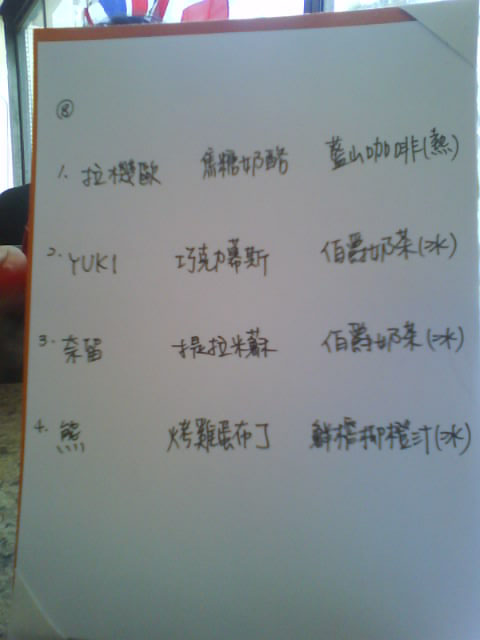 ⑧
1. 拉機歐 焦糖奶酪 藍山咖啡(熱)
2. YUKI 巧克力慕斯 伯爵奶茶(冰)
3. 奈留 提拉米蘇 伯爵奶茶(冰)
4. 熊 烤雞蛋布丁 鮮榨柳橙汁(冰)